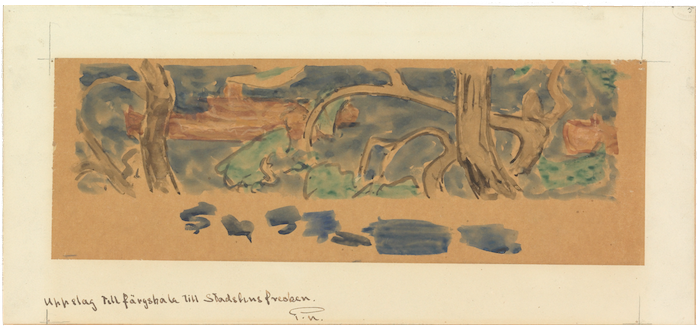 Uppslag till färgskala till Stadshusfresken.
P.U.